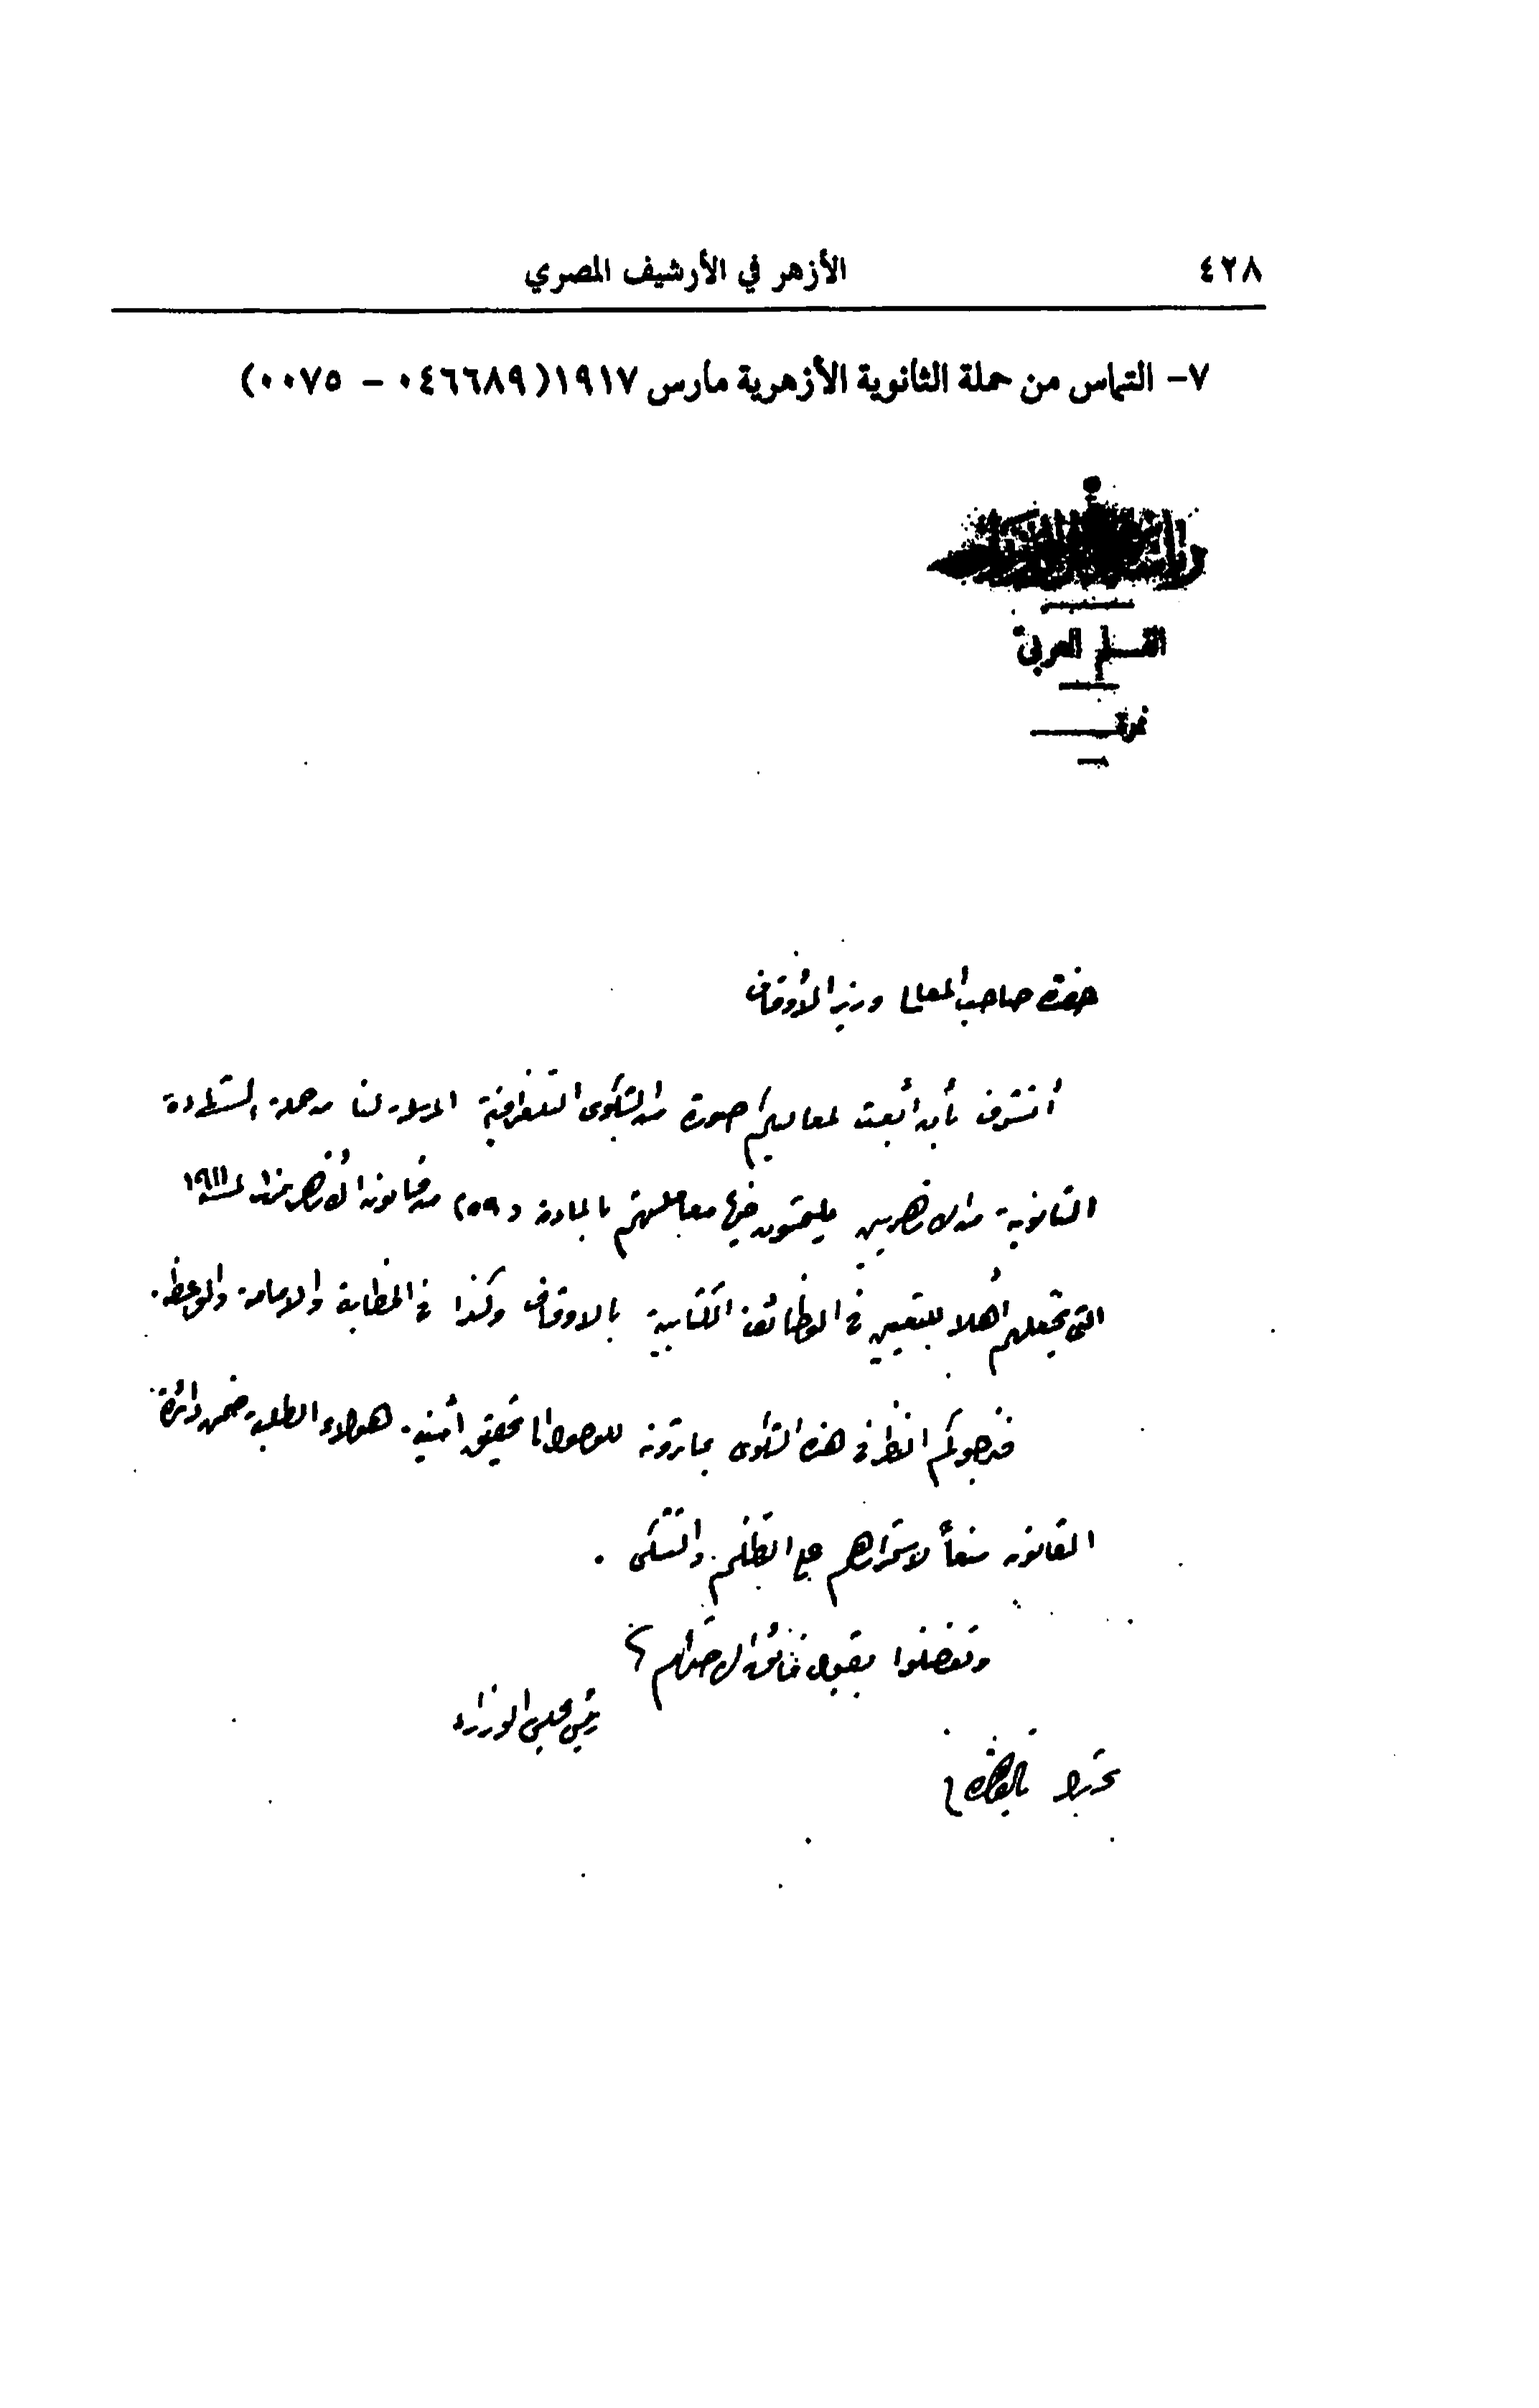 ٤٢٨
الأزهر في الأرشيف المصري
٧- التماس من حملة الثانوية الأزهرية مارس ١٩١٧ (٠٤٦٦٨٩ - ٠٠٧٥)
القسم العربى
نمرة
حضرة صاحب المعالى وزير الأوقاف
أتشرف بأن أبعث لمعاليكم صورة من الشكوى التلغرافية المرسلة لنا من حملة الشهادة
الثانوية من الازهريين يلتمسون فيها معاملتهم بالمادة (٥٩) من قانون الأزهر لسنة ١٩١١
التى تجعلهم أهلا للتعيين فى الوظائف الكتابية بالاوقاف وكذا فى الخطابة والإمامة والوعظ.
فنرجوكم النظر فى هذه الشكوى بما ترونه للوصول الى تحقيق أمنية هولاء الطلبة ضمن دائرة
القانون منعاً لاستمرارهم على التظلم والتشكى .
وتفضلوا بقبول فائق الاحترام
رئيس مجلس الوزراء
تحريرا بالقاهرة